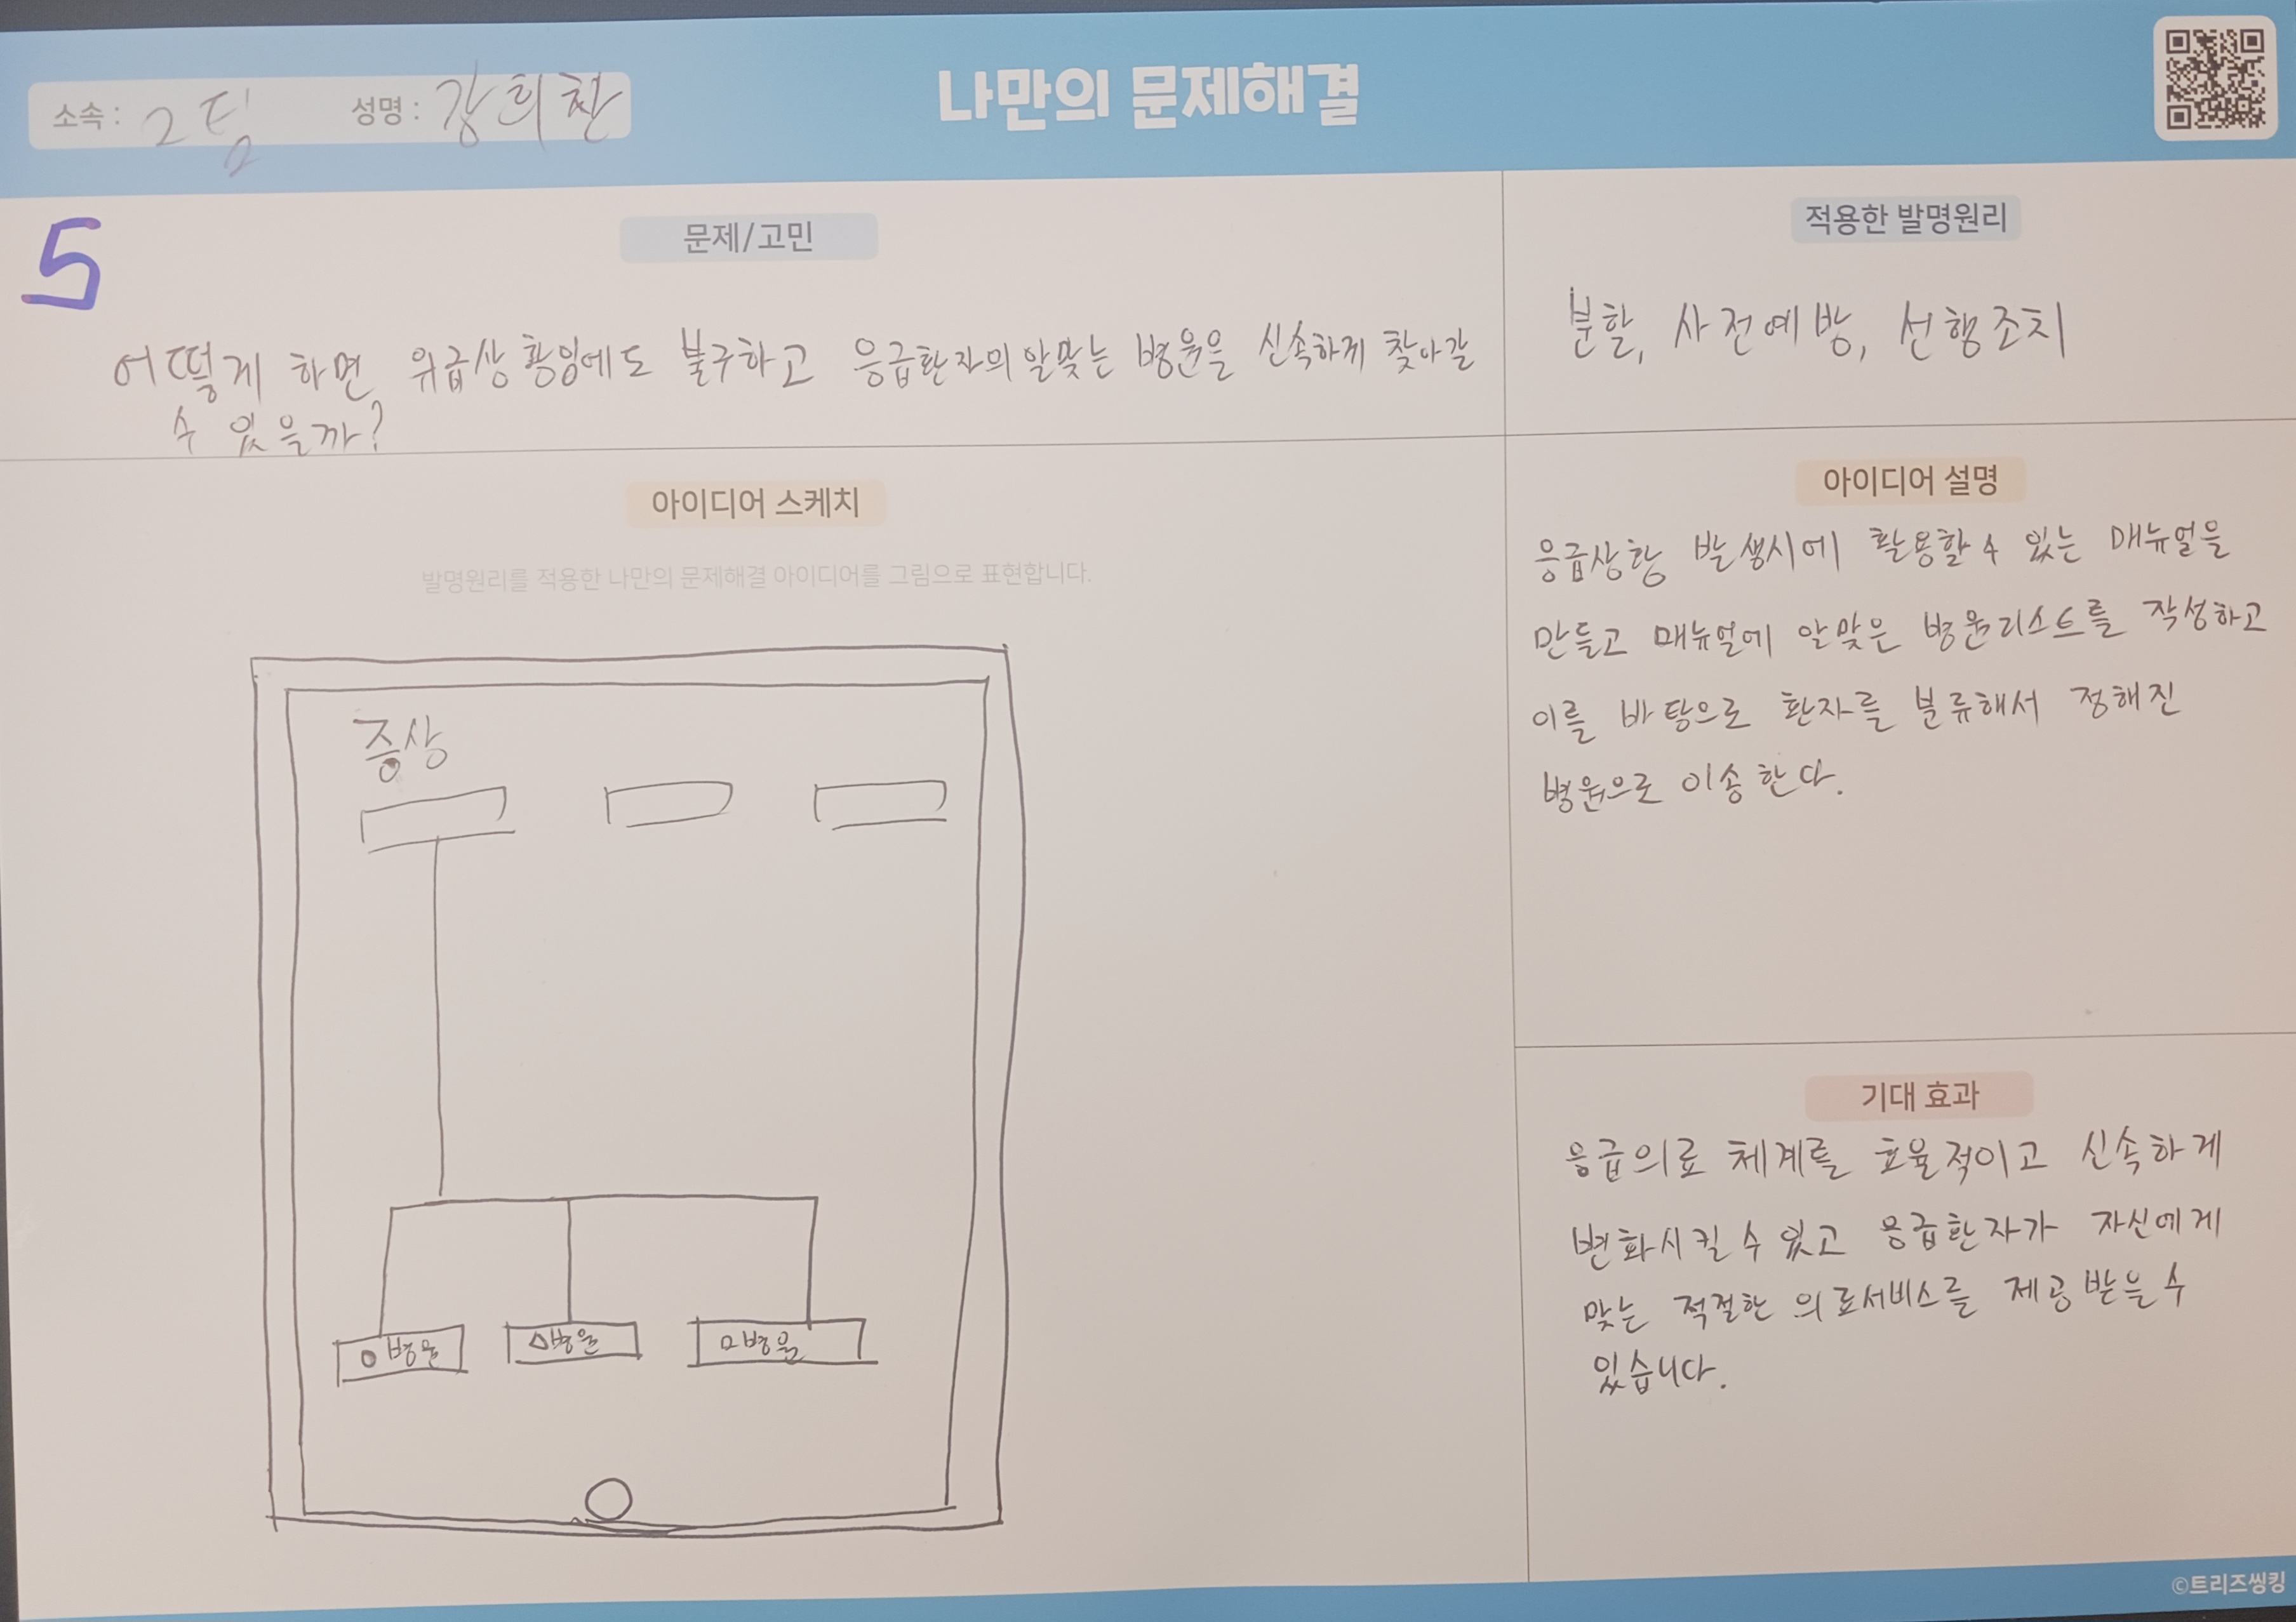 나만의 문제해결
소속 : 2팀 성명 : 강희찬
5
문제/고민
어떻게 하면 위급상황임에도 불구하고 응급환자의 알맞는 병원을 신속하게 찾아갈
수 있을까?
적용한 발명원리
분할, 사전예방, 선행조치
아이디어 스케치
발명원리를 적용한 나만의 문제해결 아이디어를 그림으로 표현합니다.
증상
○병원 △병원 □병원
아이디어 설명
응급상황 발생시에 활용할 수 있는 매뉴얼을
만들고 매뉴얼에 알맞은 병원리스트를 작성하고
이를 바탕으로 환자를 분류해서 정해진
병원으로 이송한다.
기대 효과
응급의료 체계를 효율적이고 신속하게
변화시킬 수 있고 응급환자가 자신에게
맞는 적절한 의료서비스를 제공 받을 수
있습니다.
©트리즈씽킹